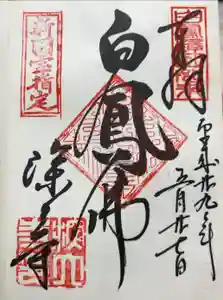 奉拝
平成廿九年
五月廿七日
白鳳佛
深大寺
新国宝指定